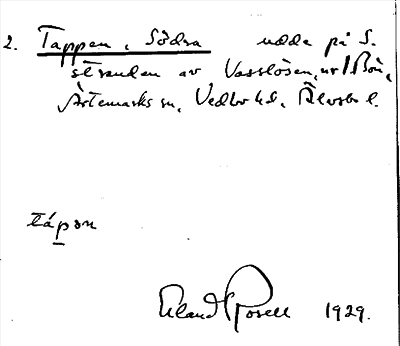 2. Tappen, Södra udde på S.
stranden av Vasslösen, nr 1 Bön,
Ärtemarks sn, Vedbo hd, Älvsbo l.
tápən
Erland Rosell 1929.